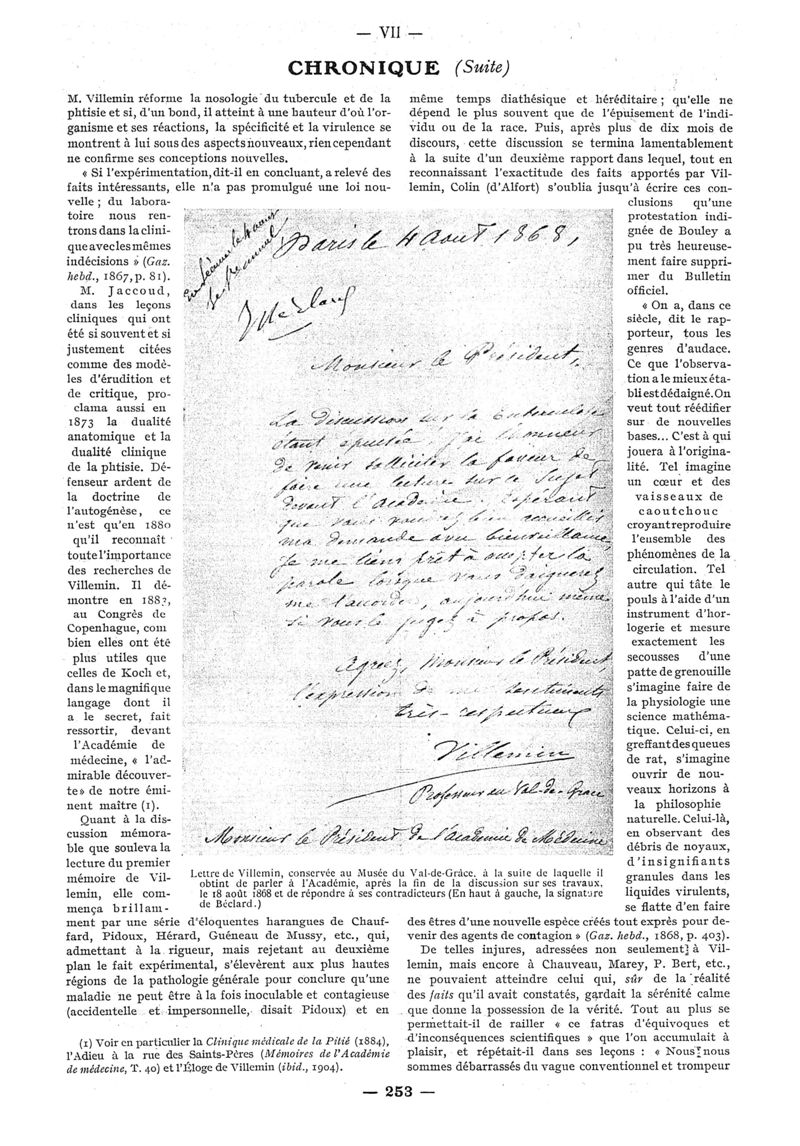 — VII —
CHRONIQUE (Suite)
M. Villemin réforme la nosologie du tubercule et de la
phtisie et si, d'un bond, il atteint à une hauteur d'où l'or-
ganisme et ses réactions, la spécificité et la virulence se
montrent à lui sous des aspects nouveaux, rien cependant
ne confirme ses conceptions nouvelles.
« Si l'expérimentation, dit-il en concluant, a relevé des
faits intéressants, elle n'a pas promulgué une loi nou-
velle ; du labora-
toire nous ren-
trons dans la clini-
que avec les mêmes
indécisions » (Gaz.
hebd., 1867, p. 81).
M. Jaccoud,
dans les leçons
cliniques qui ont
été si souvent et si
justement citées
comme des modè-
les d'érudition et
de critique, pro-
clama aussi en
1873 la dualité
anatomique et la
dualité clinique
de la phtisie. Dé-
fenseur ardent de
la doctrine de
l'autogénèse, ce
n'est qu'en 1880
qu'il reconnaît
toute l'importance
des recherches de
Villemin. Il dé-
montre en 188?,
au Congrès de
Copenhague, com
bien elles ont été
plus utiles que
celles de Koch et,
dans le magnifique
langage dont il
a le secret, fait
ressortir, devant
l'Académie de
médecine, « l'ad-
mirable découver-
te» de notre émi-
nent maître (1).
Quant à la dis-
cussion mémora-
ble que souleva la
lecture du premier
mémoire de Vil-
lemin, elle com-
mença brillam-
ment par une série d'éloquentes harangues de Chauf-
fard, Pidoux, Hérard, Guéneau de Mussy, etc., qui,
admettant à la rigueur, mais rejetant au deuxième
plan le fait expérimental, s'élevèrent aux plus hautes
régions de la pathologie générale pour conclure qu'une
maladie ne peut être à la fois inoculable et contagieuse
(accidentelle et impersonnelle, disait Pidoux) et en
(1) Voir en particulier la Clinique médicale de la Pitié (1884),
l'Adieu à la rue des Saints-Pères (Mémoires de l'Académie
de médecine, T. 40) et l'Éloge de Villemin (ibid., 1904).
même temps diathésique et héréditaire ; qu'elle ne
dépend le plus souvent que de l'épuisement de l'indi-
vidu ou de la race. Puis, après plus de dix mois de
discours, cette discussion se termina lamentablement
à la suite d'un deuxième rapport dans lequel, tout en
reconnaissant l'exactitude des faits apportés par Vil-
lemin, Colin (d'Alfort) s'oublia jusqu'à écrire ces con-
clusions qu'une
protestation indi-
gnée de Bouley a
pu très heureuse-
ment faire suppri-
mer du Bulletin
officiel.
« On a, dans ce
siècle, dit le rap-
porteur, tous les
genres d'audace.
Ce que l'observa-
tion a le mieux éta-
bli est dédaigné. On
veut tout réédifier
sur de nouvelles
bases... C'est à qui
jouera à l'origina-
lité. Tel imagine
un cœur et des
vaisseaux de
caoutchouc
croyant reproduire
l'ensemble des
phénomènes de la
circulation. Tel
autre qui tâte le
pouls à l'aide d'un
instrument d'hor-
logerie et mesure
exactement les
secousses d'une
patte de grenouille
s'imagine faire de
la physiologie une
science mathéma-
tique. Celui-ci, en
greffant des queues
de rat, s'imagine
ouvrir de nou-
veaux horizons à
la philosophie
naturelle. Celui-là,
en observant des
débris de noyaux,
d'insignifiants
granules dans les
liquides virulents,
se flatte d'en faire
des êtres d'une nouvelle espèce créés tout exprès pour de-
venir des agents de contagion » (Gaz. hebd., 1868, p. 403).
De telles injures, adressées non seulement à Vil-
lemin, mais encore à Chauveau, Marey, P. Bert, etc.,
ne pouvaient atteindre celui qui, sûr de la réalité
des faits qu'il avait constatés, gardait la sérénité calme
que donne la possession de la vérité. Tout au plus se
permettait-il de railler « ce fatras d'équivoques et
d'inconséquences scientifiques » que l'on accumulait à
plaisir, et répétait-il dans ses leçons : « Nous nous
sommes débarrassés du vague conventionnel et trompeur
Paris le 4 Aout 1868,
Monsieur le Président,
La discussion sur la tuberculose
étant épuisée, j'ai l'honneur
de venir solliciter la faveur de
faire une lecture sur ce sujet
devant l'Académie. Espérant
que vous voudrez bien accueillir
ma demande avec bienveillance,
je me tiens prêt à accepter la
parole lorsque vous daignerez
me l'accorder, aujourd'hui même
si vous le jugez à propos.
Agréez, Monsieur le Président,
l'expression de mes sentiments
très-respectueux
Villemin
Professeur au Val-de-Grace
Monsieur le Président de l'académie de Médecine
Lettre de Villemin, conservée au Musée du Val-de-Grâce, à la suite de laquelle il
obtint de parler à l'Académie, après la fin de la discussion sur ses travaux,
le 18 août 1868 et de répondre à ses contradicteurs (En haut à gauche, la signature
de Béclard.)
— 253 —